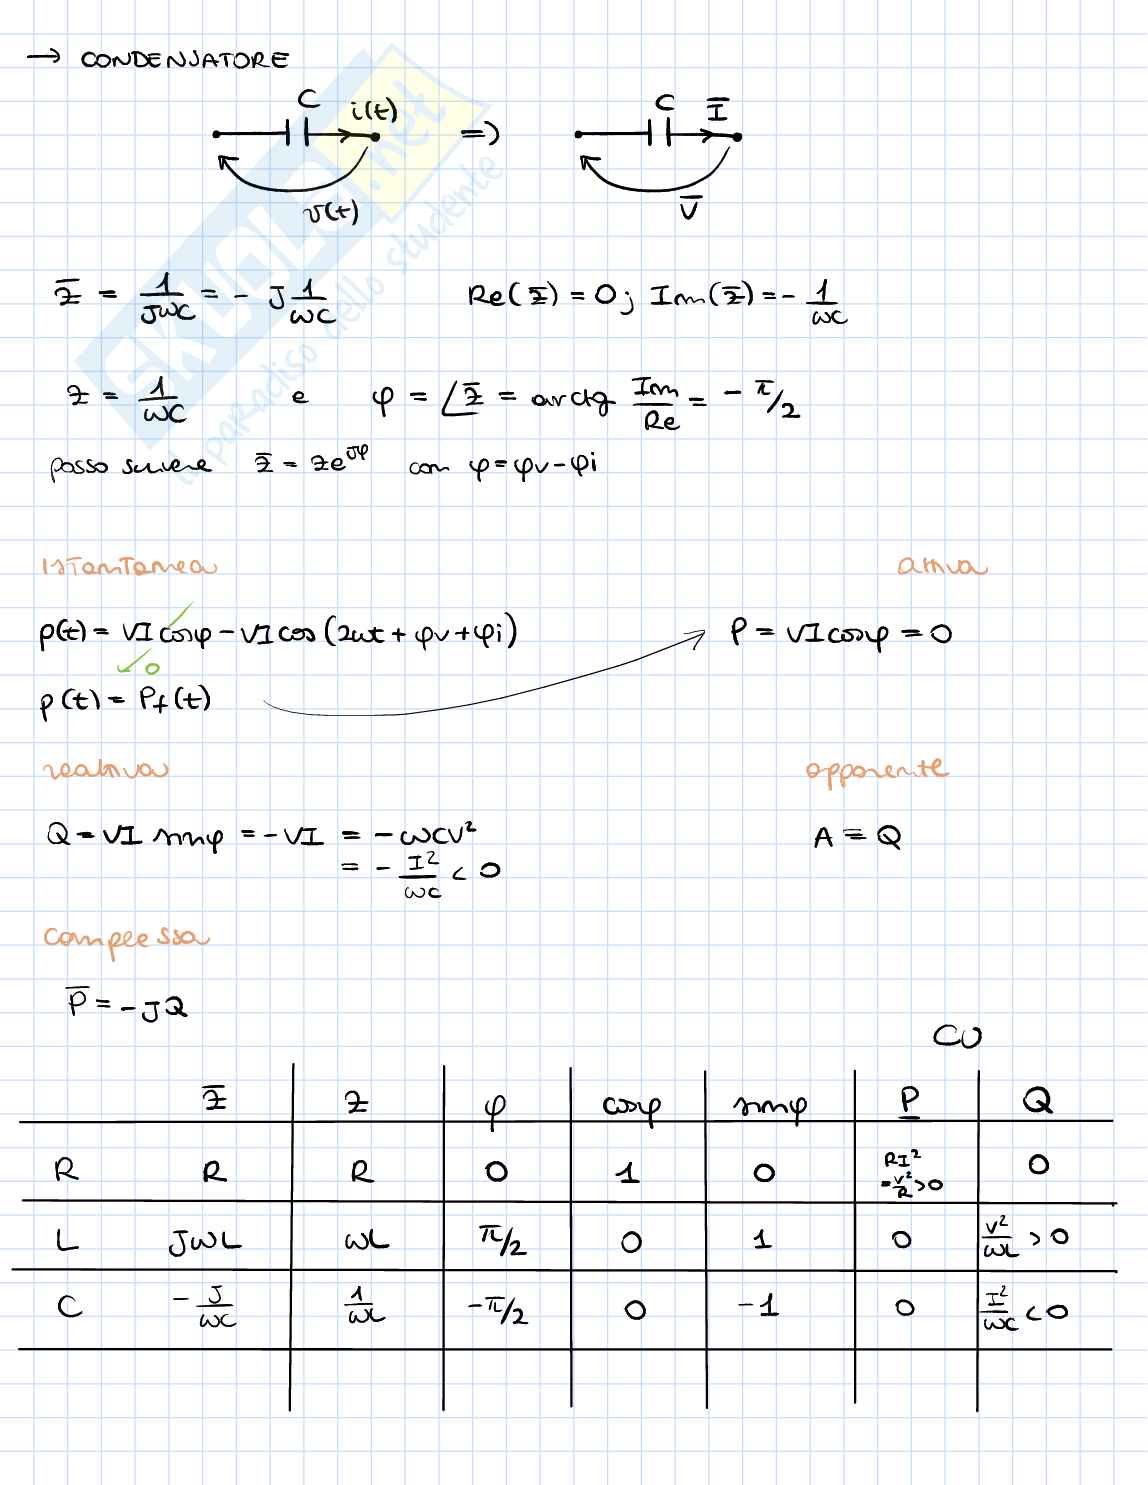 → CONDENSATORE
C i(t) => C Ī
v(t) V̄
Z̄ = 1/JωC = - J 1/ωC Re(Z̄) = 0; Im(Z̄) = - 1/ωC
Z = 1/ωC e φ = ∠Z̄ = arctg Im/Re = - π/2
posso scrivere Z̄ = Ze^Jφ con φ = φv - φi
Istantanea attiva
p(t) = VI cosφ - VI cos (2ωt + φv + φi) P = VI cosφ = 0
0
p(t) = Pf(t)
reattiva apparente
Q = VI sinφ = - VI = - ωCV² A = Q
= - I²/ωC < 0
complessa
P̄ = - JQ
CU
Z̄ Z φ cosφ sinφ P Q
R R R 0 1 0 RI² = V²/R > 0 0
L JωL ωL π/2 0 1 0 V²/ωL > 0
C - J/ωC 1/ωL -π/2 0 -1 0 I²/ωC < 0
SKUOLA.net
il paradiso dello studente